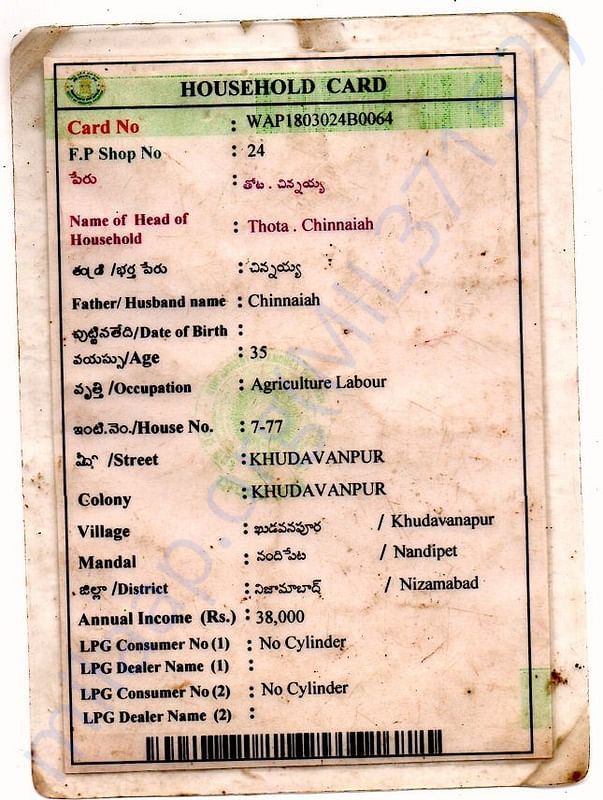 HOUSEHOLD CARD
Card No : WAP1803024B0064
F.P Shop No : 24
పేరు : తోట . చిన్నయ్య
Name of Head of
Household : Thota . Chinnaiah
తండ్రి /భర్త పేరు : చిన్నయ్య
Father/ Husband name : Chinnaiah
పుట్టినతేది/Date of Birth :
వయస్సు/Age : 35
వృత్తి /Occupation : Agriculture Labour
ఇంటి.నెం./House No. : 7-77
వీధి /Street : KHUDAVANPUR
Colony : KHUDAVANPUR
Village : ఖుడవనపూర / Khudavanapur
Mandal : నందిపేట / Nandipet
జిల్లా /District : నిజామాబాద్ / Nizamabad
Annual Income (Rs.) : 38,000
LPG Consumer No (1) : No Cylinder
LPG Dealer Name (1) :
LPG Consumer No (2) : No Cylinder
LPG Dealer Name (2) :